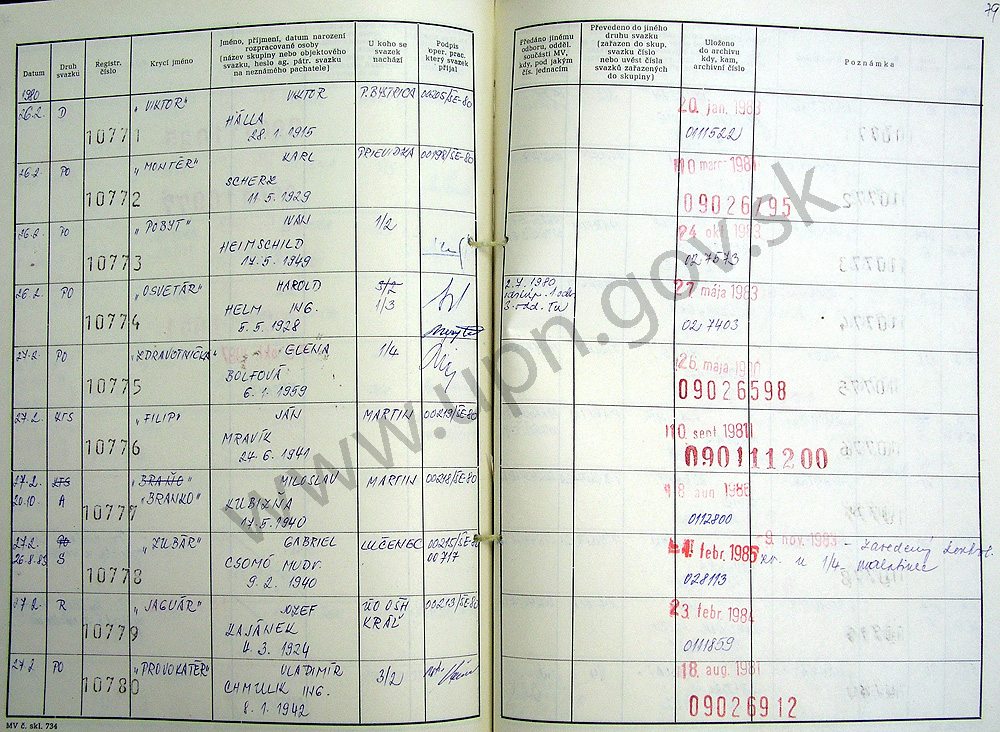 79
Datum
Druh svazku
Registr. číslo
Krycí jméno
Jméno, příjmení, datum narození
rozpracované osoby
(název skupiny nebo objektového
svazku, heslo ag. pátr. svazku
na neznámého pachatele)
U koho se
svazek
nachází
Podpis
oper. prac.
který svazek
přijal
Předáno jinému
odboru, odděl.
součásti MV,
kdy, pod jakým
čís. jednacím
Převedeno do jiného
druhu svazku
(zařazen do skup.
svazku číslo
nebo uvést čísla
svazků zařazených
do skupiny)
Uloženo
do archivu
kdy, kam,
archivní číslo
Poznámka
1980
26.2. D 10771 "VIKTOR" VIKTOR P. BYSTRICA 00205/ŠE-80 20. jan. 1983
HÁLLA
28. 1. 1915 0111522
26.2. PO 10772 "MONTÉR" KARL PRIEVIDZA 00198/ŠE-80
SCHERZ
11. 5. 1929 09026495
26.2. PO 10773 "POBYT" IVAN 1/2 24 okt. 1983
HEIMSCHILD
17. 5. 1949 027573
26.2. PO 10774 "OSVETÁR" HAROLD 3/2 27 mája 1983
HELM ING. 1/3
5. 5. 1928 027403
27.2. PO 10775 "ZDRAVOTNIČKA" ELENA 1/4 26 mája
BOLFOVÁ
6. 1. 1959 09026598
27.2. KTS 10776 "FILIP" JÁN MARTIN 00219/ŠE-80 10. sept. 1981
MRAVÍK
24. 6. 1941 090111200
27.2. KTS 10777 "BRAŇO" MILOSLAV MARTIN 00218/ŠE-80 18 aug. 1986
20.10. A "BRANKO"
KUBIZŇA
17. 5. 1940 0112800
27.2. PO 10778 "ZUBÁR" GABRIEL LUČENEC 00215/ŠE-80 febr. 1986 -9. nov. 1983 - zavedený
26.8.83 S 00717
CSOMÓ MUDr.
9. 2. 1940 028113
27.2. R 10779 "JAGUÁR" JOZEF ÚO OŠH 00213/ŠE-80 23 febr. 1984
KRÁĽ
KAJÁNEK
4. 3. 1924 0111859
27.2. PO 10780 "PROVOKATÉR" VLADIMÍR 3/2 18 aug. 1981
CHMULIK ING.
8. 1. 1942 09026912
MV č. skl. 734
www.upn.gov.sk